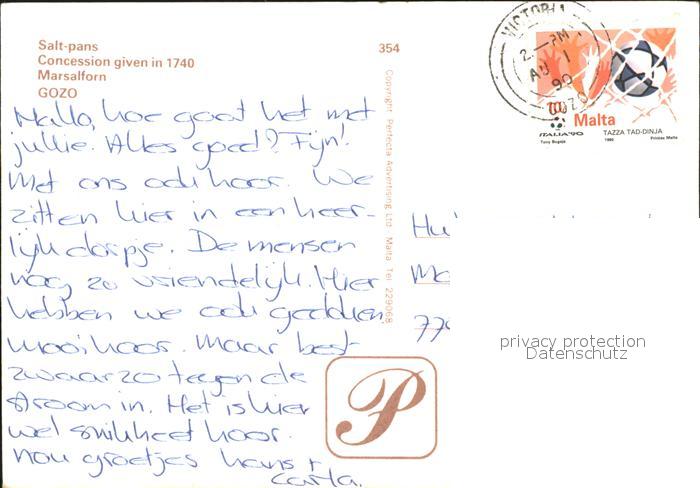 Salt-pans
Concession given in 1740
Marsalforn
GOZO
354
Copyright Perfecta Advertising Ltd. Malta Tel 229068
VICTORIA
2 - PM
AU 1
90
GOZO
ITALIA '90
Malta
TAZZA TAD-DINJA
Tony Bugeja
1990
Printex Malta
Hallo, hoe gaat het met
jullie. Alles goed? Fijn!
Met ons ook hoor. We
zitten hier in een heer-
lijk dorpje. De mensen
nog zo vriendelijk. Hier
hebben we ook
mooi hoor. Maar best
zwaar zo tegen de
stroom in. Het is hier
wel snikheet hoor.
nou groetjes hans +
Carla.
Hu
Ma
779
P
privacy protection
Datenschutz